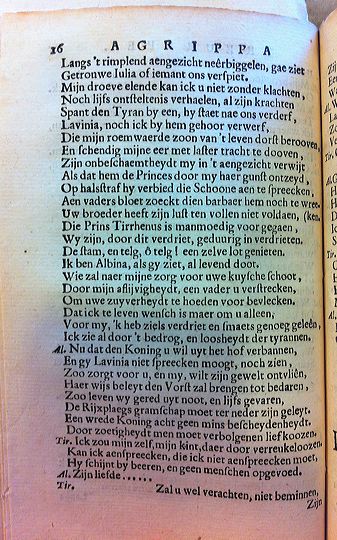 16 AGRIPPA
Langs 't rimplend aengezicht neêrbiggelen, gae ziet
Getronwe Iulia of iemant ons verspiet.
Mijn droeve elende kan ick u niet zonder klachten,
Noch lijfs ontsteltenis verhaelen, al zijn krachten
Spant den Tyran by een, hy staet nae ons verderf,
Lavinia, noch ick by hem gehoor verwerf,
Die mijn roem waerde zoon van 't leven dorst berooven,
En schendig mijne eer met laster tracht te dooven,
Zijn onbeschaemtheydt my in 't aengezicht verwijt
Als dat hem de Princes door my haer gunst ontzeyd,
Op halsstraf hy verbied die Schoone aen te spreecken,
Aen vaders bloet zoeckt dien barbaer hem noch te wree-
Uw broeder heeft zijn lust ten vollen niet voldaen, (ken.
Die Prins Tirrhenus is manmoedig voor gegaen,
Wy zijn, door dit verdriet, geduurig in verdrieten.
De stam, en telg, ô telg! een zelve lot genieten.
Ik ben Albina, als gy ziet, al levend door.
Wie zal naer mijne zorg voor uwe kuysche schoot,
Door mijn aflijvigheydt, een vader u verstrecken,
Om uwe zuyverheydt te hoeden voor bevlecken.
Dat ick te leven wensch is maer om u alleen,
Voor my, 'k heb ziels verdriet en smaets genoeg geleên,
Ick zie al door 't bedrog, en loosheydt der tyrannen.
Al. Nu dat den Koning u wil uyt het hof verbannen,
En gy Lavinia niet spreecken moogt, noch zien,
Zoo zorgt voor u, en my, wilt zijn gewelt ontvliên,
Haer wijs beleyt den Vorst zal brengen tot bedaren,
Zoo leven wy gered uyt noot, en lijfs gevaren,
De Rijxplaegs gramschap moet ter neder zijn geleyt.
Een wrede Koning acht geen mins bescheydenheydt.
Door zoetigheydt men moet verbolgenen lief koozen.
Tir. Ick zou mijn zelf, mijn kint, daer door verreukeloozen
Kan ick aenspreecken, die ick niet aenspreecken moet,
Hy schijnt by beeren, en geen menschen opgevoed.
Al. Zijn liefde......
Tir. Zal u wel verachten, niet beminnen,
Zijn